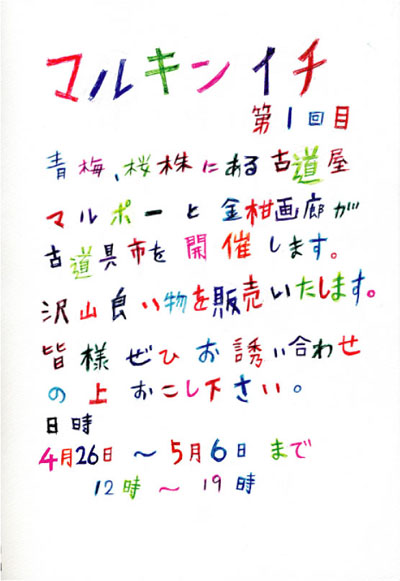 マルキンイチ
第1回目
青梅、桜株にある古道屋
マルポーと金柑画廊が
古道具市を開催します。
沢山良い物を販売いたします。
皆様ぜひお誘い合わせ
の上おこし下さい。
日時
4月26日〜5月6日まで
12時〜19時